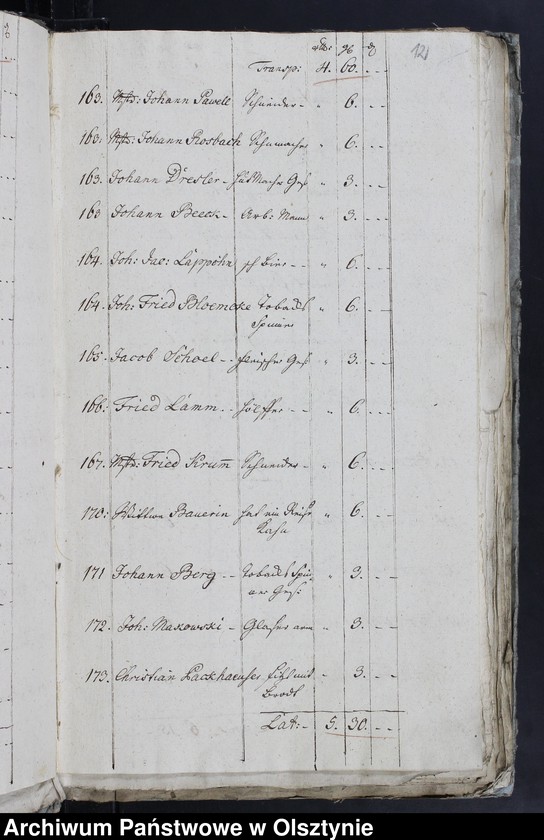 rth: gr ₰
121
Transp: 4. 60. - -
163. Mstr: Johann Pawell Schneider - „ 6. - -
163. Mstr: Johann Rosbach Schumacher „ 6. - -
163. Johann Dresler - Gesß „ 3. - -
163 Johann Beeck - Arb: Mann „ 3. - -
164. Joh: Jac: Lappöhn - - „ 6. - -
164. Joh: Fried Bloemcke Toback „ 6. - -
Spinner
165. Jacob Schoel - - Gesß „ 3. - -
166. Fried Lamm - - - - „ 6. - -
167. Mstr: Fried Krum̄ Schneider - „ 6. - -
170: Wittwe Bauerin hat ein „ 6. - -
Kahn
171 Johann Berg - - Toback Spin „ 3. - -
ner Ges:
172. Joh: Makowski - Glaser arm „ 3. - -
173. Christian Packhaeuser „ 3. - -
Brodt
Lat: - 5. 30. - -
Archiwum Państwowe w Olsztynie